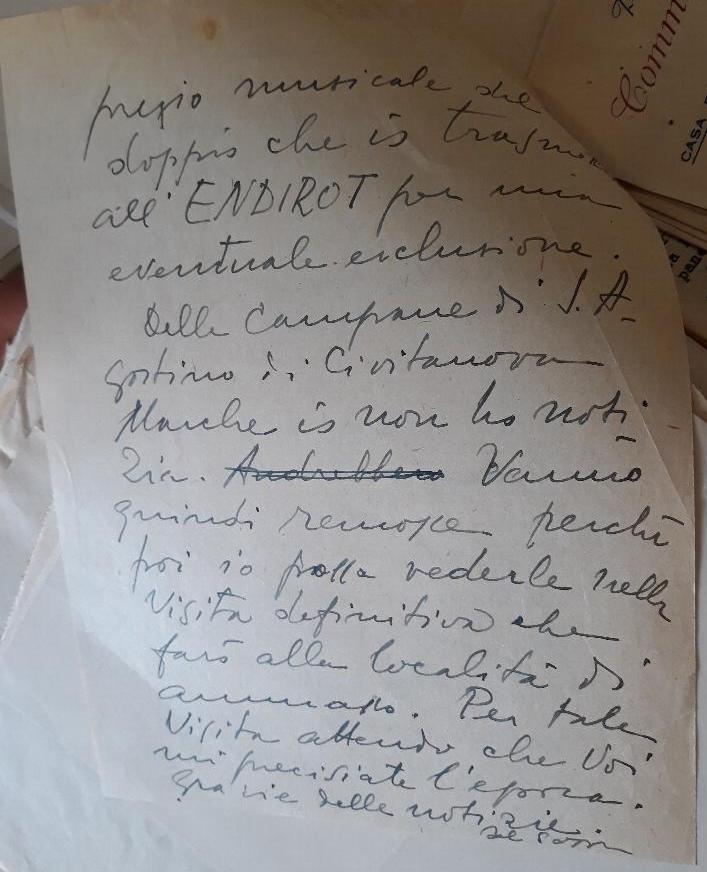 pregio musicale che
doppio che io
all'ENDIROT per mia
eventuale esclusione.
Delle Campane di S. A-
gostino di Civitanova
Marche io non ho noti
zia. Andrebbero Vanno
quindi remosse perchè
poi io possa vederle nella
visita definitiva che
farò alla località di
ammasso. Per tale
visita attendo che Voi
mi precisiate l'epoca.
Grazie delle notizie
Comm
CASA
pane